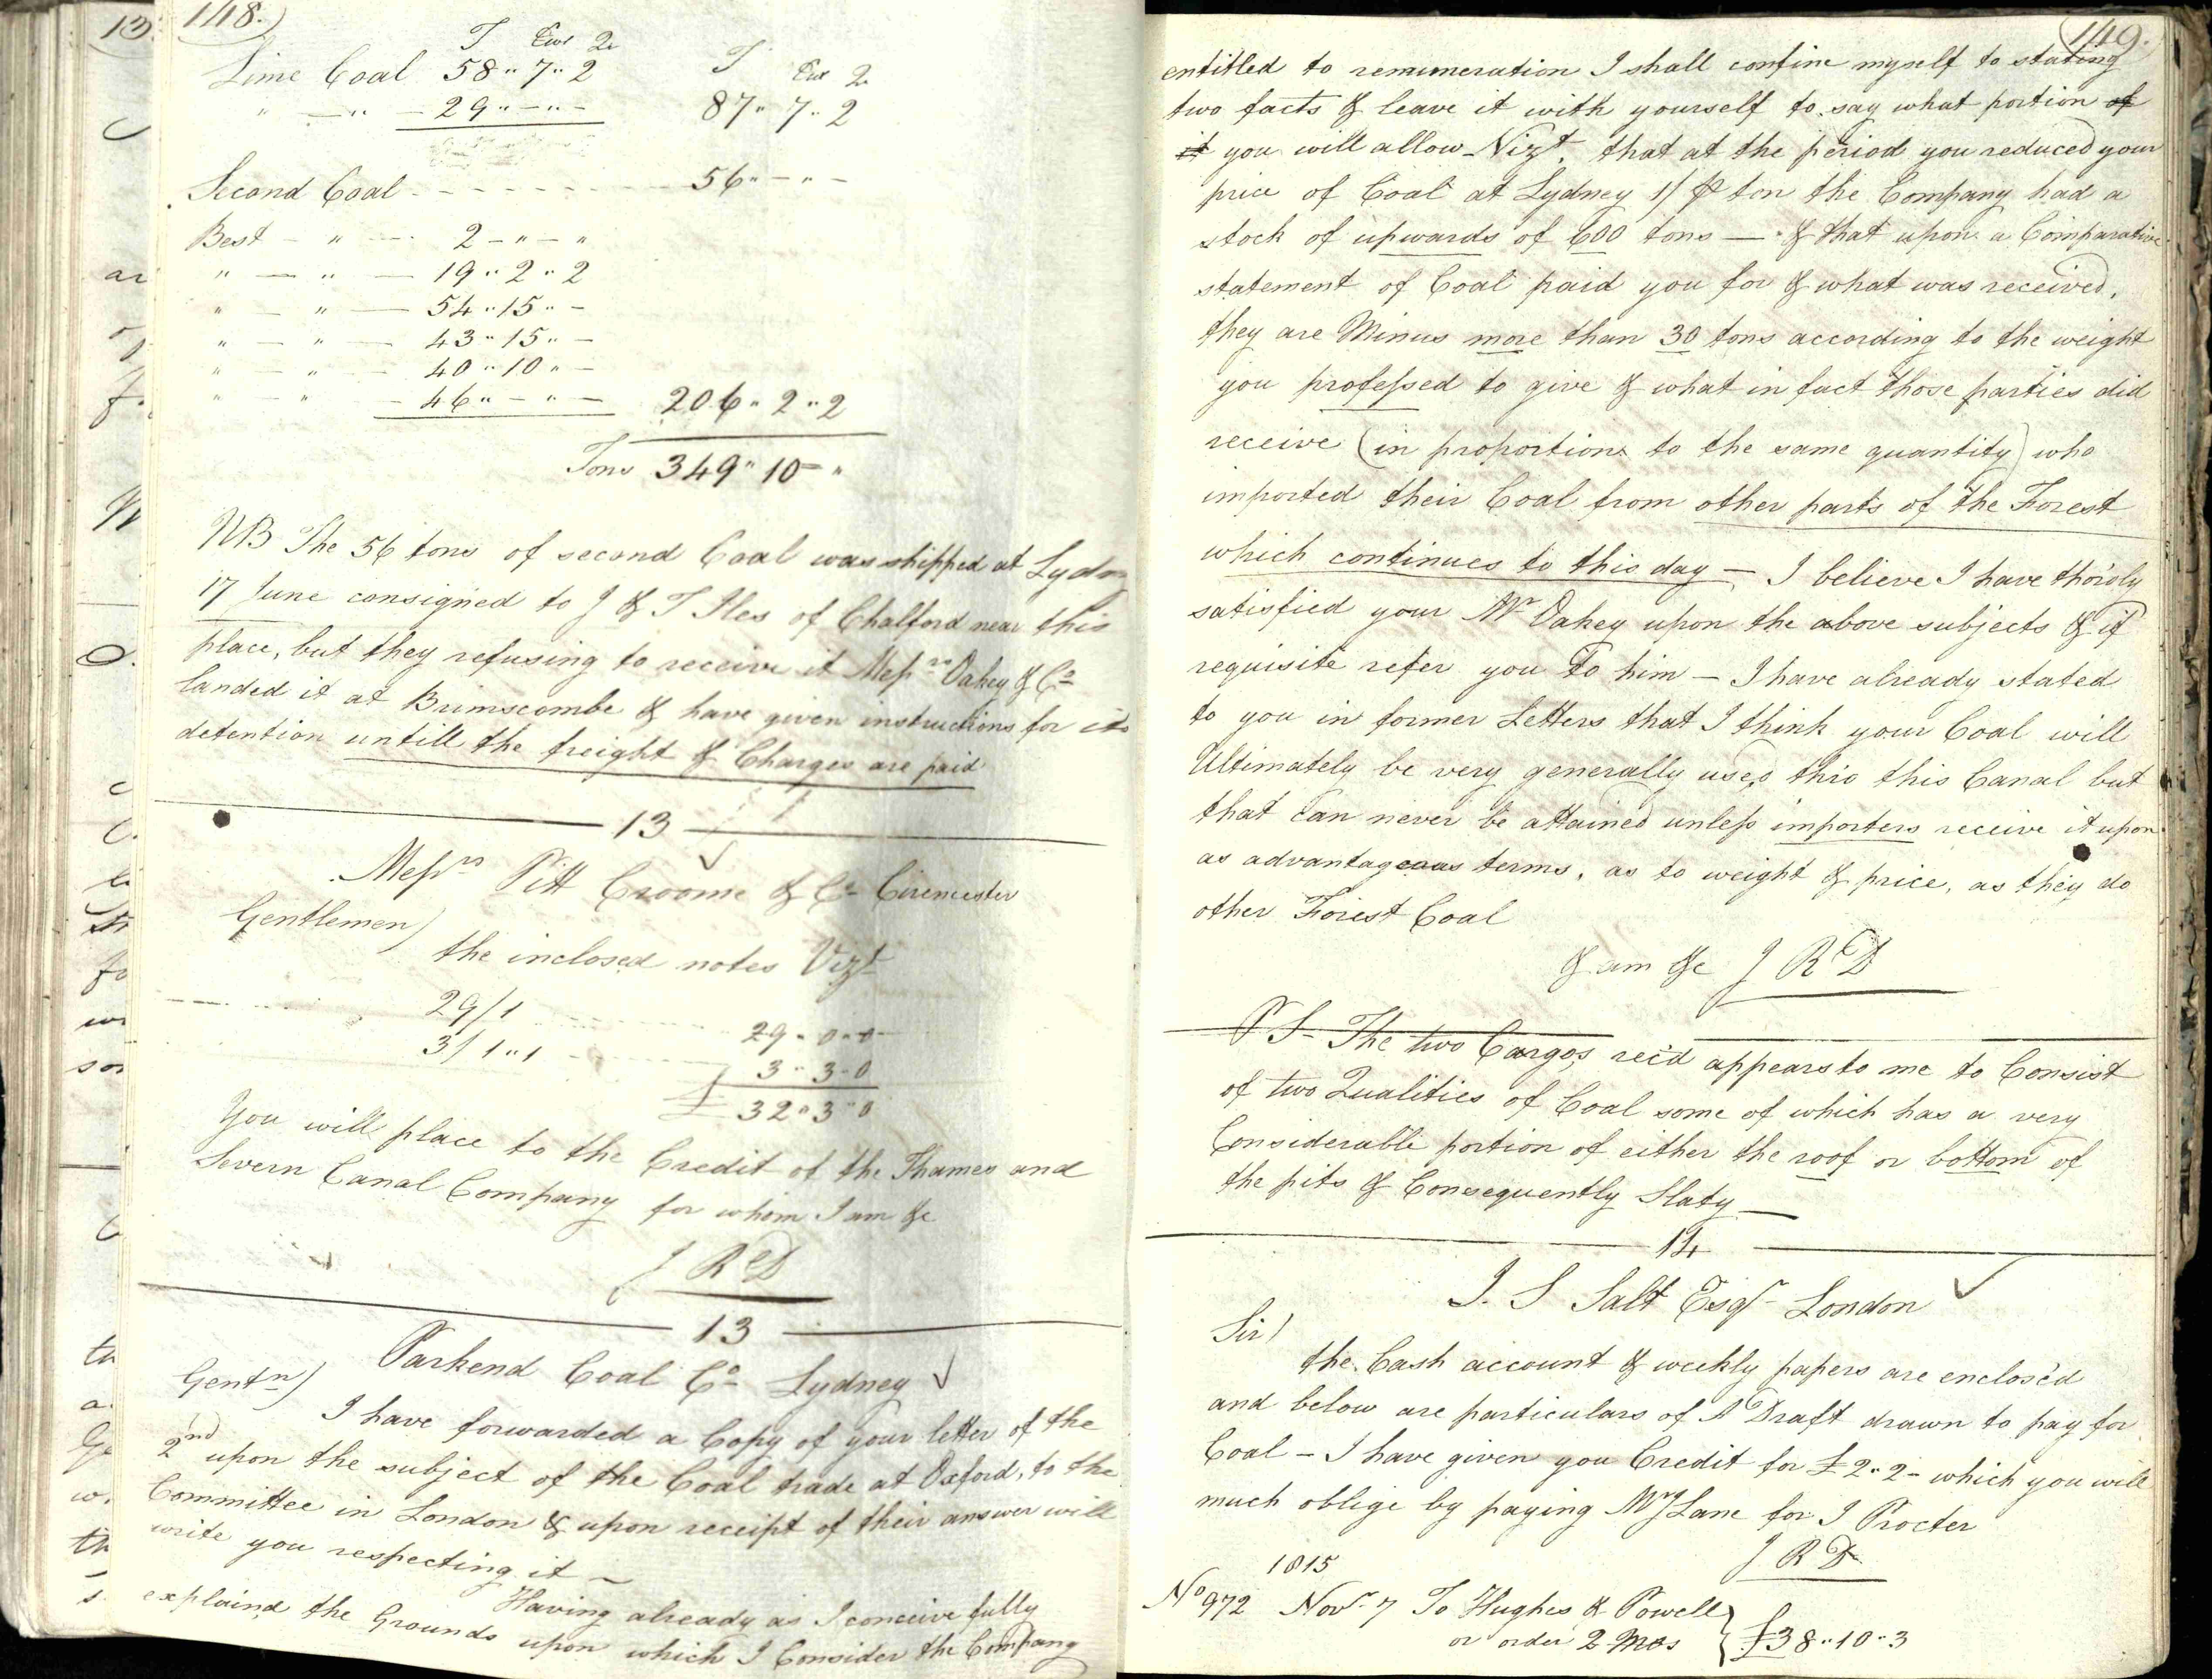 148.
T Cwt Q
Lime Coal 58 " 7 " 2
T Cwt Q
" — " — 29 " — " — 87 " 7 " 2
Second Coal - - - - - - - - 56 " — " —
Best — " — 2 — " — "
" — " — 19 " 2 " 2
" — " — 54 " 15 " —
" — " — 43 " 15 " —
" — " — 40 " 10 " —
" — " — 46 " — " — 206 " 2 " 2
Tons 349 " 10 — "
NB The 56 tons of second Coal was shipped at Lydn
17 June consigned to J & T Iles of Chalford near this
place, but they refusing to receive it Messrs Oakey & Co
landed it at Brimscombe & have given instructions for its
detention untill the freight & Charges are paid
13
Messrs Pitt Croome & Co Cirencester
Gentlemen)
the inclosed notes Vizt
29/1 29 " 0 " 0
3/1 " 1 3 " 3 " 0
£ 32 " 3 " 0
You will place to the Credit of the Thames and
Severn Canal Company for whom I am &c
J R D
13
Parkend Coal Co Lydney
Gentn)
I have forwarded a Copy of your letter of the
2nd upon the subject of the Coal trade at Oxford, to the
Committee in London & upon receipt of their answer will
write you respecting it —
Having already as I conceive fully
explaind the Grounds upon which I Consider the Company
149.
entitled to remuneration I shall confine myself to stating
two facts & leave it with yourself to say what portion of
it you will allow — Vizt. that at the period you reduced your
price of Coal at Lydney 1/ ⅌ ton the Company had a
stock of upwards of 600 tons — & that upon a Comparative
statement of Coal paid you for & what was received,
they are Minus more than 30 tons according to the weight
you professed to give & what in fact those parties did
receive (in proportion to the same quantity) who
imported their Coal from other parts of the Forest
which continues to this day — I believe I have tho'roly
satisfied your Mr Oakey upon the above subjects & if
requisite refer you to him — I have already stated
to you in former Letters that I think your Coal will
Ultimately be very generally used thro this Canal but
that can never be attained unless importers receive it upon
as advantageous terms, as to weight & price, as they do
other Forest Coal
& am &c J R D
P S — The two Cargos rec'd appears to me to Consist
of two Qualities of Coal some of which has a very
Considerable portion of either the roof or bottom of
the pits & Consequently Slaty —
14
J. S Salt Esqr London
Sir)
the Cash account & weekly papers are enclos'd
and below are particulars of A Draft drawn to pay for
Coal — I have given you Credit for £2 " 2 — which you will
much oblige by paying Mr J Lane for J Procter
J R D
1815
No 972 Novr 7 To Hughes & Powell
or order 2 Mos } £38 " 10 " 3